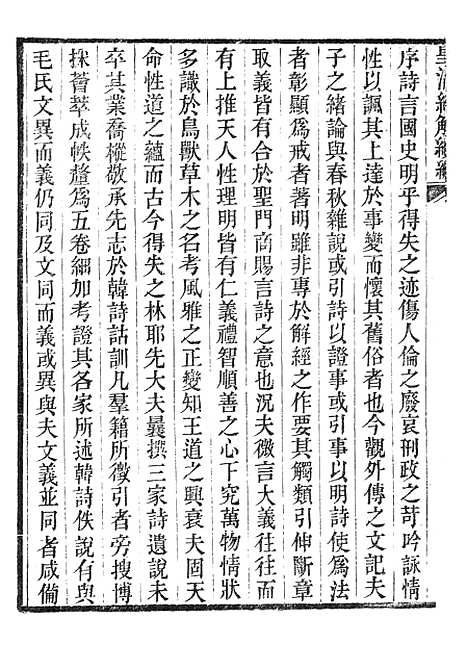 皇清經解續編
序詩言國史明乎得失之迹傷人倫之廢哀刑政之苛吟詠情
性以諷其上達於事變而懷其舊俗者也今觀外傳之文記夫
子之緒論與春秋雜說或引詩以證事或引事以明詩使為法
者彰顯為戒者著明雖非專於解經之作要其觸類引伸斷章
取義皆有合於聖門商賜言詩之意也況夫微言大義往往而
有上推天人性理明皆有仁義禮智順善之心下究萬物情狀
多識於鳥獸草木之名考風雅之正變知王道之興衰夫固天
命性道之蘊而古今得失之林耶先大夫曩撰三家詩遺說未
卒其業喬樅敬承先志於韓詩詁訓凡羣籍所徵引者旁搜博
採薈萃成帙釐為五卷細加考證其各家所述韓詩佚說有與
毛氏文異而義仍同及文同而義或異與夫文義並同者咸備